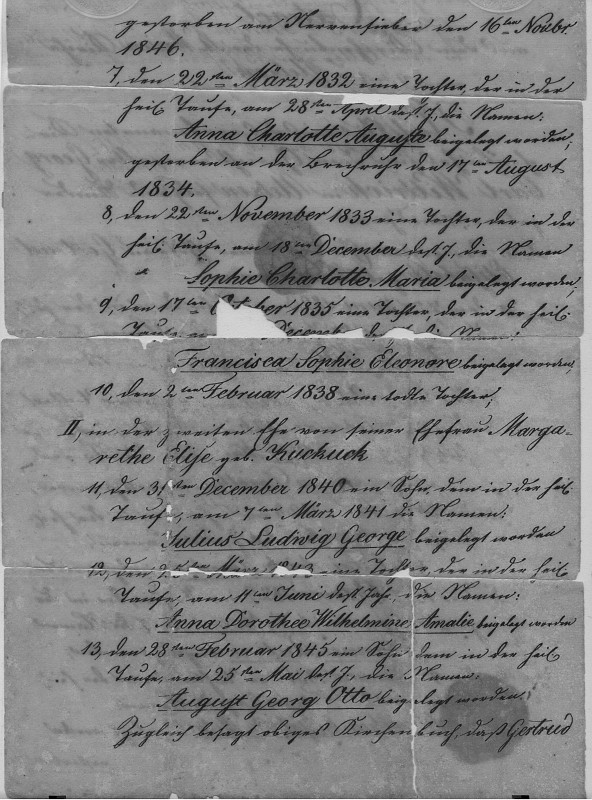 gestorben am Nervenfieber den 16ten Novbr.
1846.
7, den 22sten März 1832 eine Tochter, der in der
heil. Taufe, am 28sten April desf. J., die Namen:
Anna Charlotte Auguste beigelegt worden;
gestorben an der Brechruhr den 17ten August
1834.
8, den 22sten November 1833 eine Tochter, der in der
heil. Taufe, am 18ten December desf. J., die Namen
Sophie Charlotte Maria beigelegt worden;
9, den 17ten October 1835 eine Tochter, der in der heil.
Taufe, am December
Francisca Sophie Eleonore beigelegt worden;
10, den 2ten Februar 1838 eine todte Tochter;
II, in der zweiten Ehe von seiner Ehefrau Marga-
rethe Elise geb. Kuckuck
11, den 31sten December 1840 ein Sohn, dem in der heil.
Taufe, am 7ten März 1841 die Namen:
Julius Ludwig George beigelegt worden
12, den 25sten März 1843 eine Tochter, der in der heil.
Taufe, am 11ten Juni desf. Jahr. die Namen:
Anna Dorothee Wilhelmine Amalie beigelegt worden
13, den 28sten Februar 1845 ein Sohn dem in der heil.
Taufe, am 25sten Mai desf. J., die Namen:
August Georg Otto beigelegt worden;
Zugleich besagt obiges Kirchenbuch, daß Gertrud